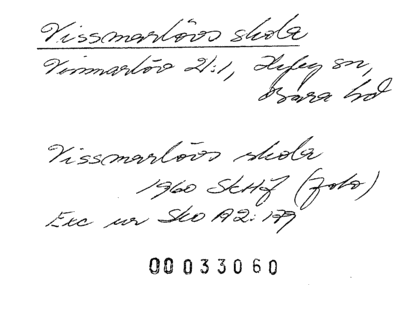 Vissmarlövs skola
Vissmarlöv 21:1, Hyby sn,
Bara hd
Vissmarlövs skola
1960 SkHf (foto)
Exc ur Sko A2:179
00033060